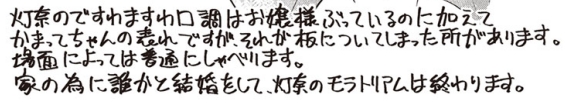 灯奈のですわますわ口調はお嬢様ぶっているのに加えて
かまってちゃんの表れですが、それが板についてしまった所があります。
場面によっては普通にしゃべります。
家の為に誰かと結婚をして、灯奈のモラトリアムは終わります。